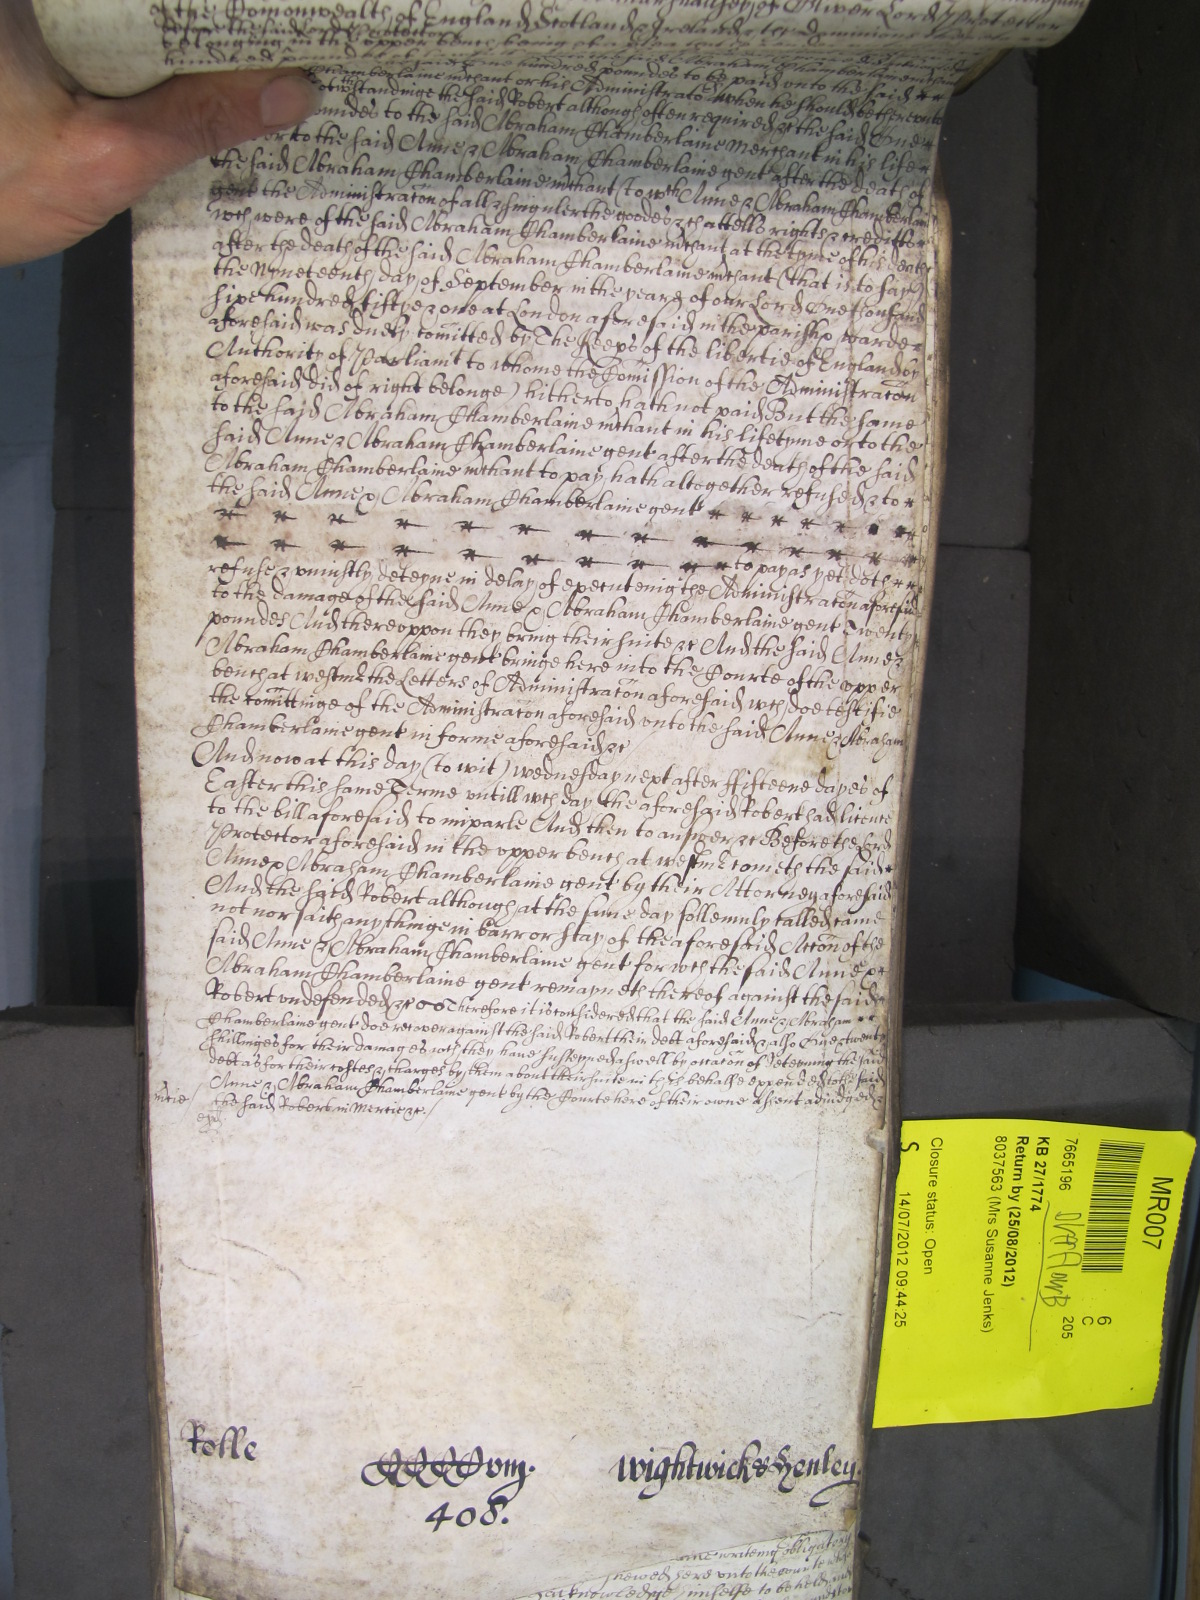 of the Comonwealth of England Scotland & Ireland & the dominions
one hundred poundes to be paid unto the said
Chamberlaine mchant or his Administrato when he should be thereunto
notwthstandinge the said Robert although often required &c the said One
poundes to the said Abraham Chamberlaine merchant in his life
or to the said Anne & Abraham Chamberlaine gent after the death of
the said Abraham Chamberlaine mchant (to wch Anne & Abraham Chamberlain
gent the Administracon of all & singuler the goodes & chattells rights & creditts
wch were of the said Abraham Chamberlaine mchant at the tyme of his death
after the death of the said Abraham Chamberlaine mchant (that is to say)
the Nyneteenth day of September in the yeare of our Lord One thousand
sixe hundred fiftye & one at London aforesaid in the parish & warde
aforesaid was duely comitted by The Keeps of the libertie of England by
Authority of Parliamt to whome the Comission of the Administracon
aforesaid did of right belonge) hitherto hath not paid But the same
to the said Abraham Chamberlaine mchant in his lifetyme or to the
said Anne & Abraham Chamberlaine gent after the death of the said
Abraham Chamberlaine mchant to pay hath altogether refused & to
the said Anne & Abraham Chamberlaine gent
to pay as yet doth
refuse & uniustly deteyne in delay of executeinge the Administracon aforesaid
to the damage of the said Anne & Abraham Chamberlaine gent Twenty
poundes And thereuppon they bring their suite &c And the said Anne &
Abraham Chamberlaine gent bringe here into the Courte of the upper
bench at westmr the Letters of Administracon aforesaid wch doe testifie
the comittinge of the Administracon aforesaid unto the said Anne & Abraham
Chamberlaine gent in forme aforesaid &c
And now at this day (to wit) wednesday next after ffifteene dayes of
Easter this same Terme untill wch day the aforesaid Robert had licence
to the bill aforesaid to imparle And then to answer &c Before the Lord
Protector aforesaid in the upper bench at westmr cometh the said
Anne & Abraham Chamberlaine gent by their Attorney aforesaid
And the said Robert although at the same day sollemnly called came
not nor saith any thinge in barr or stay of the aforesaid Accon of the
said Anne & Abraham Chamberlaine gent for wch the said Anne &
Abraham Chamberlaine gent remayneth thereof against the said
Robert undefended &c Therefore it is considered that the said Anne & Abraham
Chamberlaine gent doe recover against the said Robert their debt aforesaid & also One & twenty
shillinges for their damages wch they have susteyned aswell by occacon of deteyning the said
debt as for their costes & charges by them about their suite in this behalfe expended to the said
Anne & Abraham Chamberlaine gent by the Courte here of their owne assent adiudged &
mcie the said Robert in Mercie &c.
Rolle
CCCCviij.
Wightwick & Henley.
408.
one writeing obligatory
shewed here unto the courte
acknowledge himselfe to be held
MR007
6
C
7665196
205
KB 27/1774
Return by (25/08/2012)
8037563 (Mrs Susanne Jenks)
Closure status: Open
S
14/07/2012 09:44:25